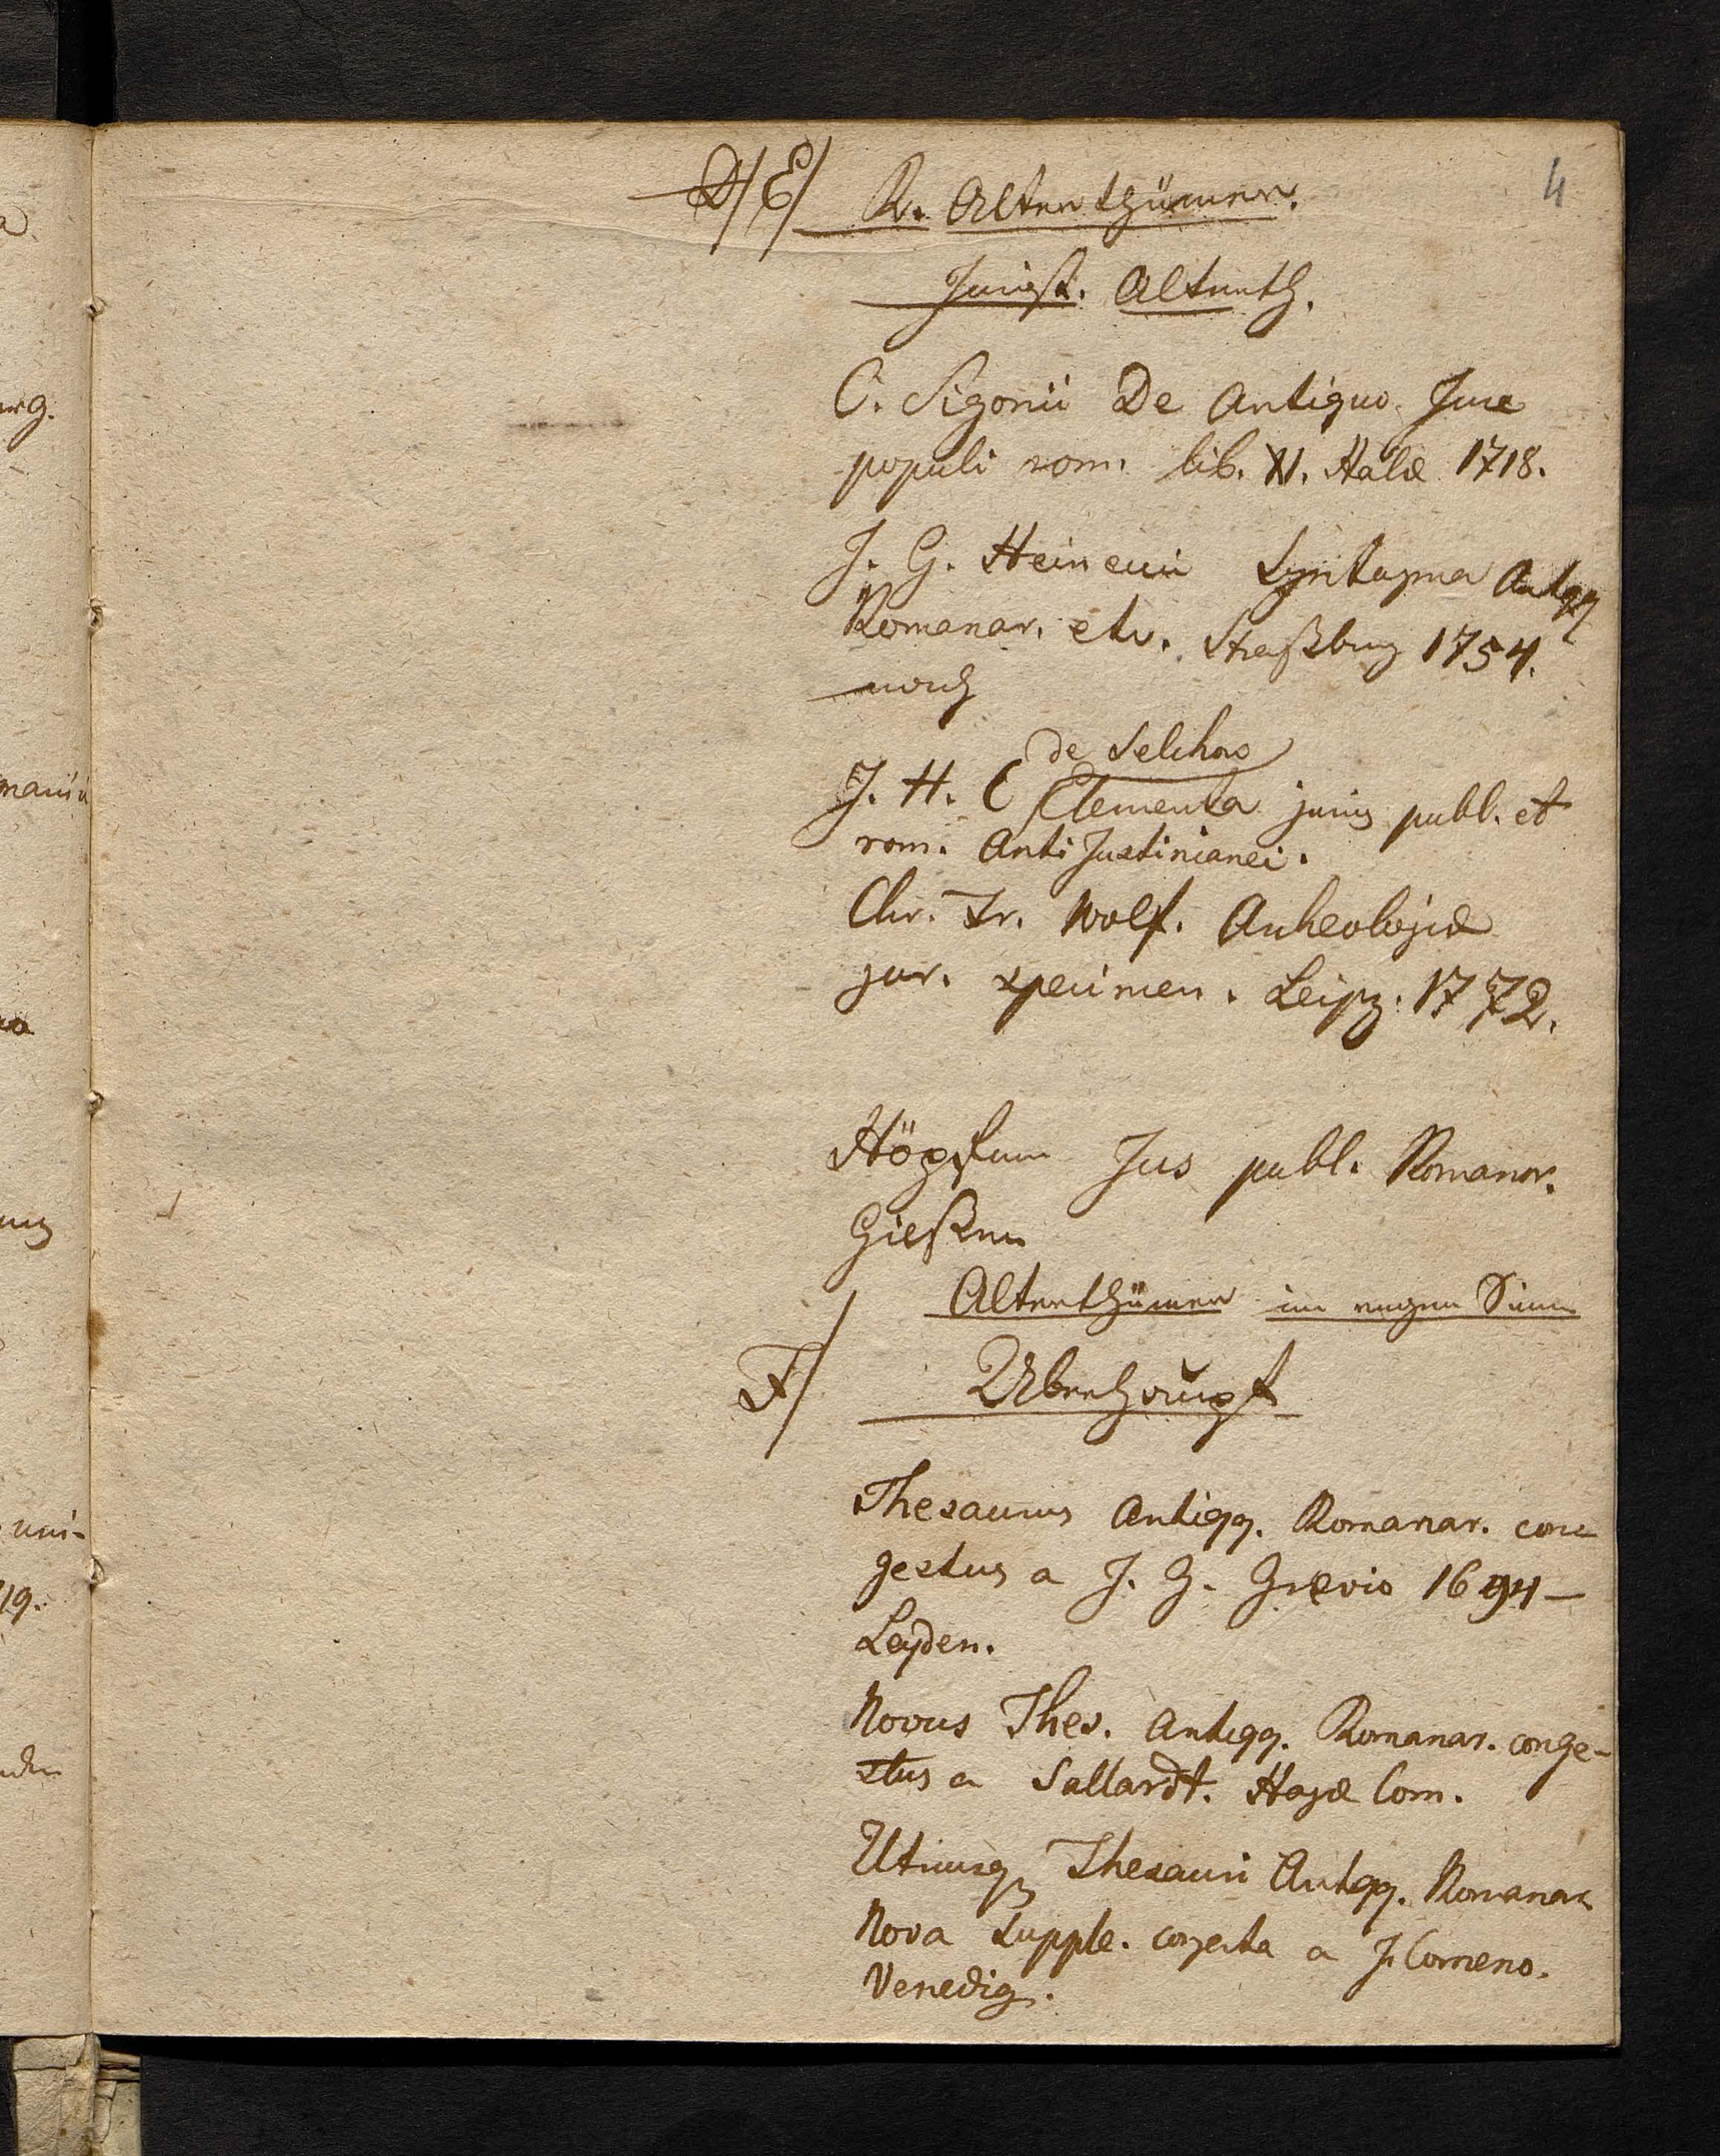 D/ E/ R. Alterthümer.
4
Jurist. Alterth.
C. Sigonii De Antiquo Jure
populi rom. lib. XI. Halæ 1718.
J. G. Heineccii Syntagma Antqq
Romanar. etc. Straßburg 1754.
noch
de Selchow
J. H. C Elementa juris publ. et
rom. AntiJustinianei.
Chr. Fr. Wolf. Archeologiæ
jur. specimen. Leipz. 1772.
Höpfner Jus publ. Romanor.
Gießen
Alterthümer im engern Sinne
F/ Überhaupt
Thesaurus Antiqq. Romanar. con
gestus a J. G. Grævio 1694—
Leyden.
Novus Thes. Antiqq. Romanar. conge-
stus a Sallardt. Hagæ Com.
Utriusq Thesauri Antqq. Romanar
Nova Supple. congesta a J. Comeno.
Venedig.